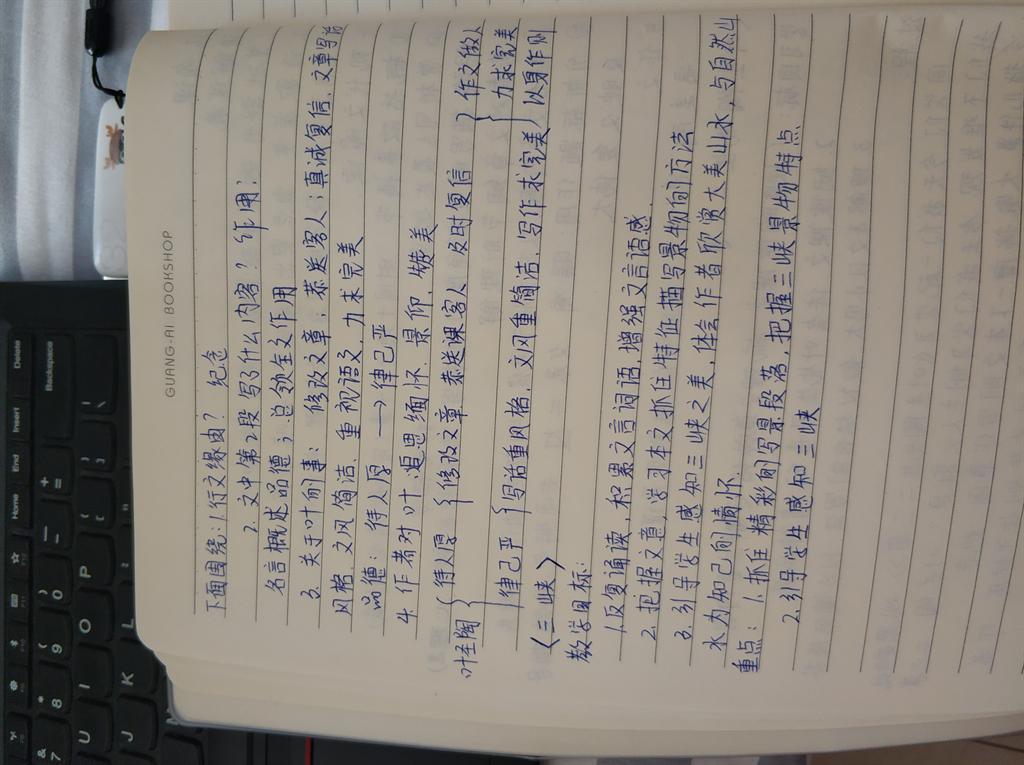 GUANG-AI BOOKSHOP
下面围绕:1.行文缘由? 纪念
2. 文中第2段写了什么内容? 作用:
名言概述品德;总领全文作用
3. 关于叶的事: 修改文章;恭送客人;真诚复信、文章写话
风格、文风简洁、重视语文,力求完美
品德: 待人厚 → 律己严
4. 作者对叶:追思缅怀、景仰、赞美
叶圣陶 { 待人厚 { 修改文章 恭送课客人 及时复信 } 作文做人
律己严 { 写话重风格,文风重简洁、写作求完美 } 力求完美 以身作则
《三峡》
教学目标:
1.反复诵读,积累文言词语,增强文言语感.
2. 把握文意,学习本文抓住特征描写景物的方法
3. 引导学生感知三峡之美,体会作者欣赏大美山水,与自然山
水为知己的情怀.
重点: 1. 抓住精彩的写景段落,把握三峡景物特点
2. 引导学生感知三峡
Home
End
Insert
Delete
Backspace
&
7
*
8
(
9
)
0
U
I
O
P
J
K
L